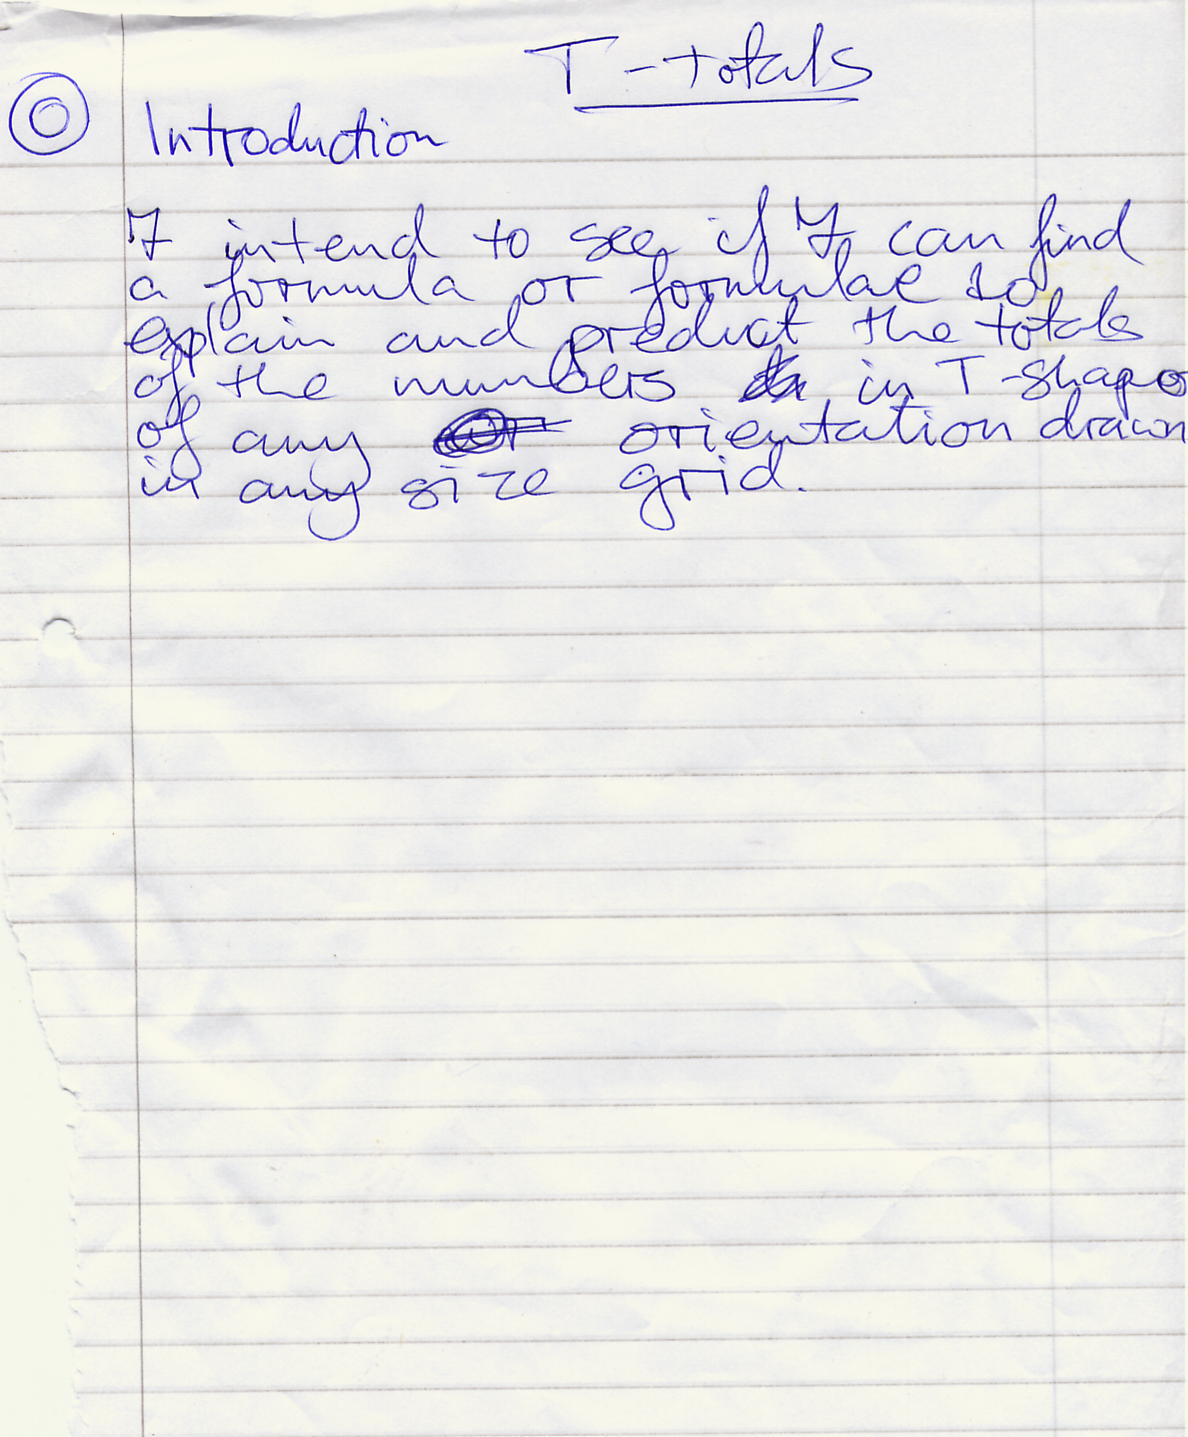 T-totals
0 Introduction
I intend to see if I can find
a formula or formulae to
explain and predict the totals
of the numbers in T-shapes
of any orientation drawn
in any size grid.